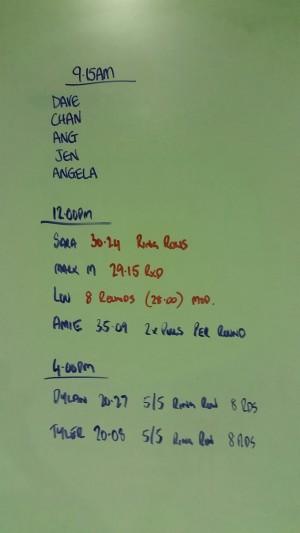 9.15AM
DAVE
CHAN
ANG
JEN
ANGELA
12.00PM
SARA 30.24 RING ROWS
MARK M 29.15 RXD
LIN 8 ROUNDS (28.00) MOD.
AMIE 35.09 2x PULLS PER ROUND
4.00PM
DYLAN 20.27 5/5 RING ROW 8 RDS
TYLER 20.08 5/5 RING ROW 8 RDS